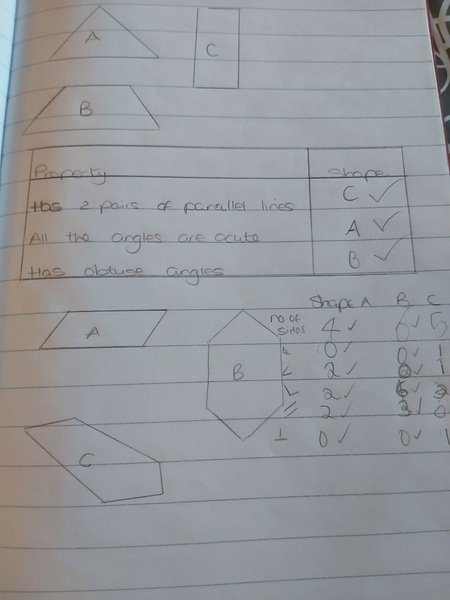 A
C
B
Property Shape
Has 2 pairs of parallel lines C ✓
All the angles are acute A ✓
Has obtuse angles B ✓
Shape A B C
no of
sides 4 ✓ 6 ✓ 5
A
0 ✓ 0 ✓ 1
B
2 ✓ 0 1
2 ✓ 6
2 ✓ 3 0
⊥ 0 ✓ 0 ✓ 1
C